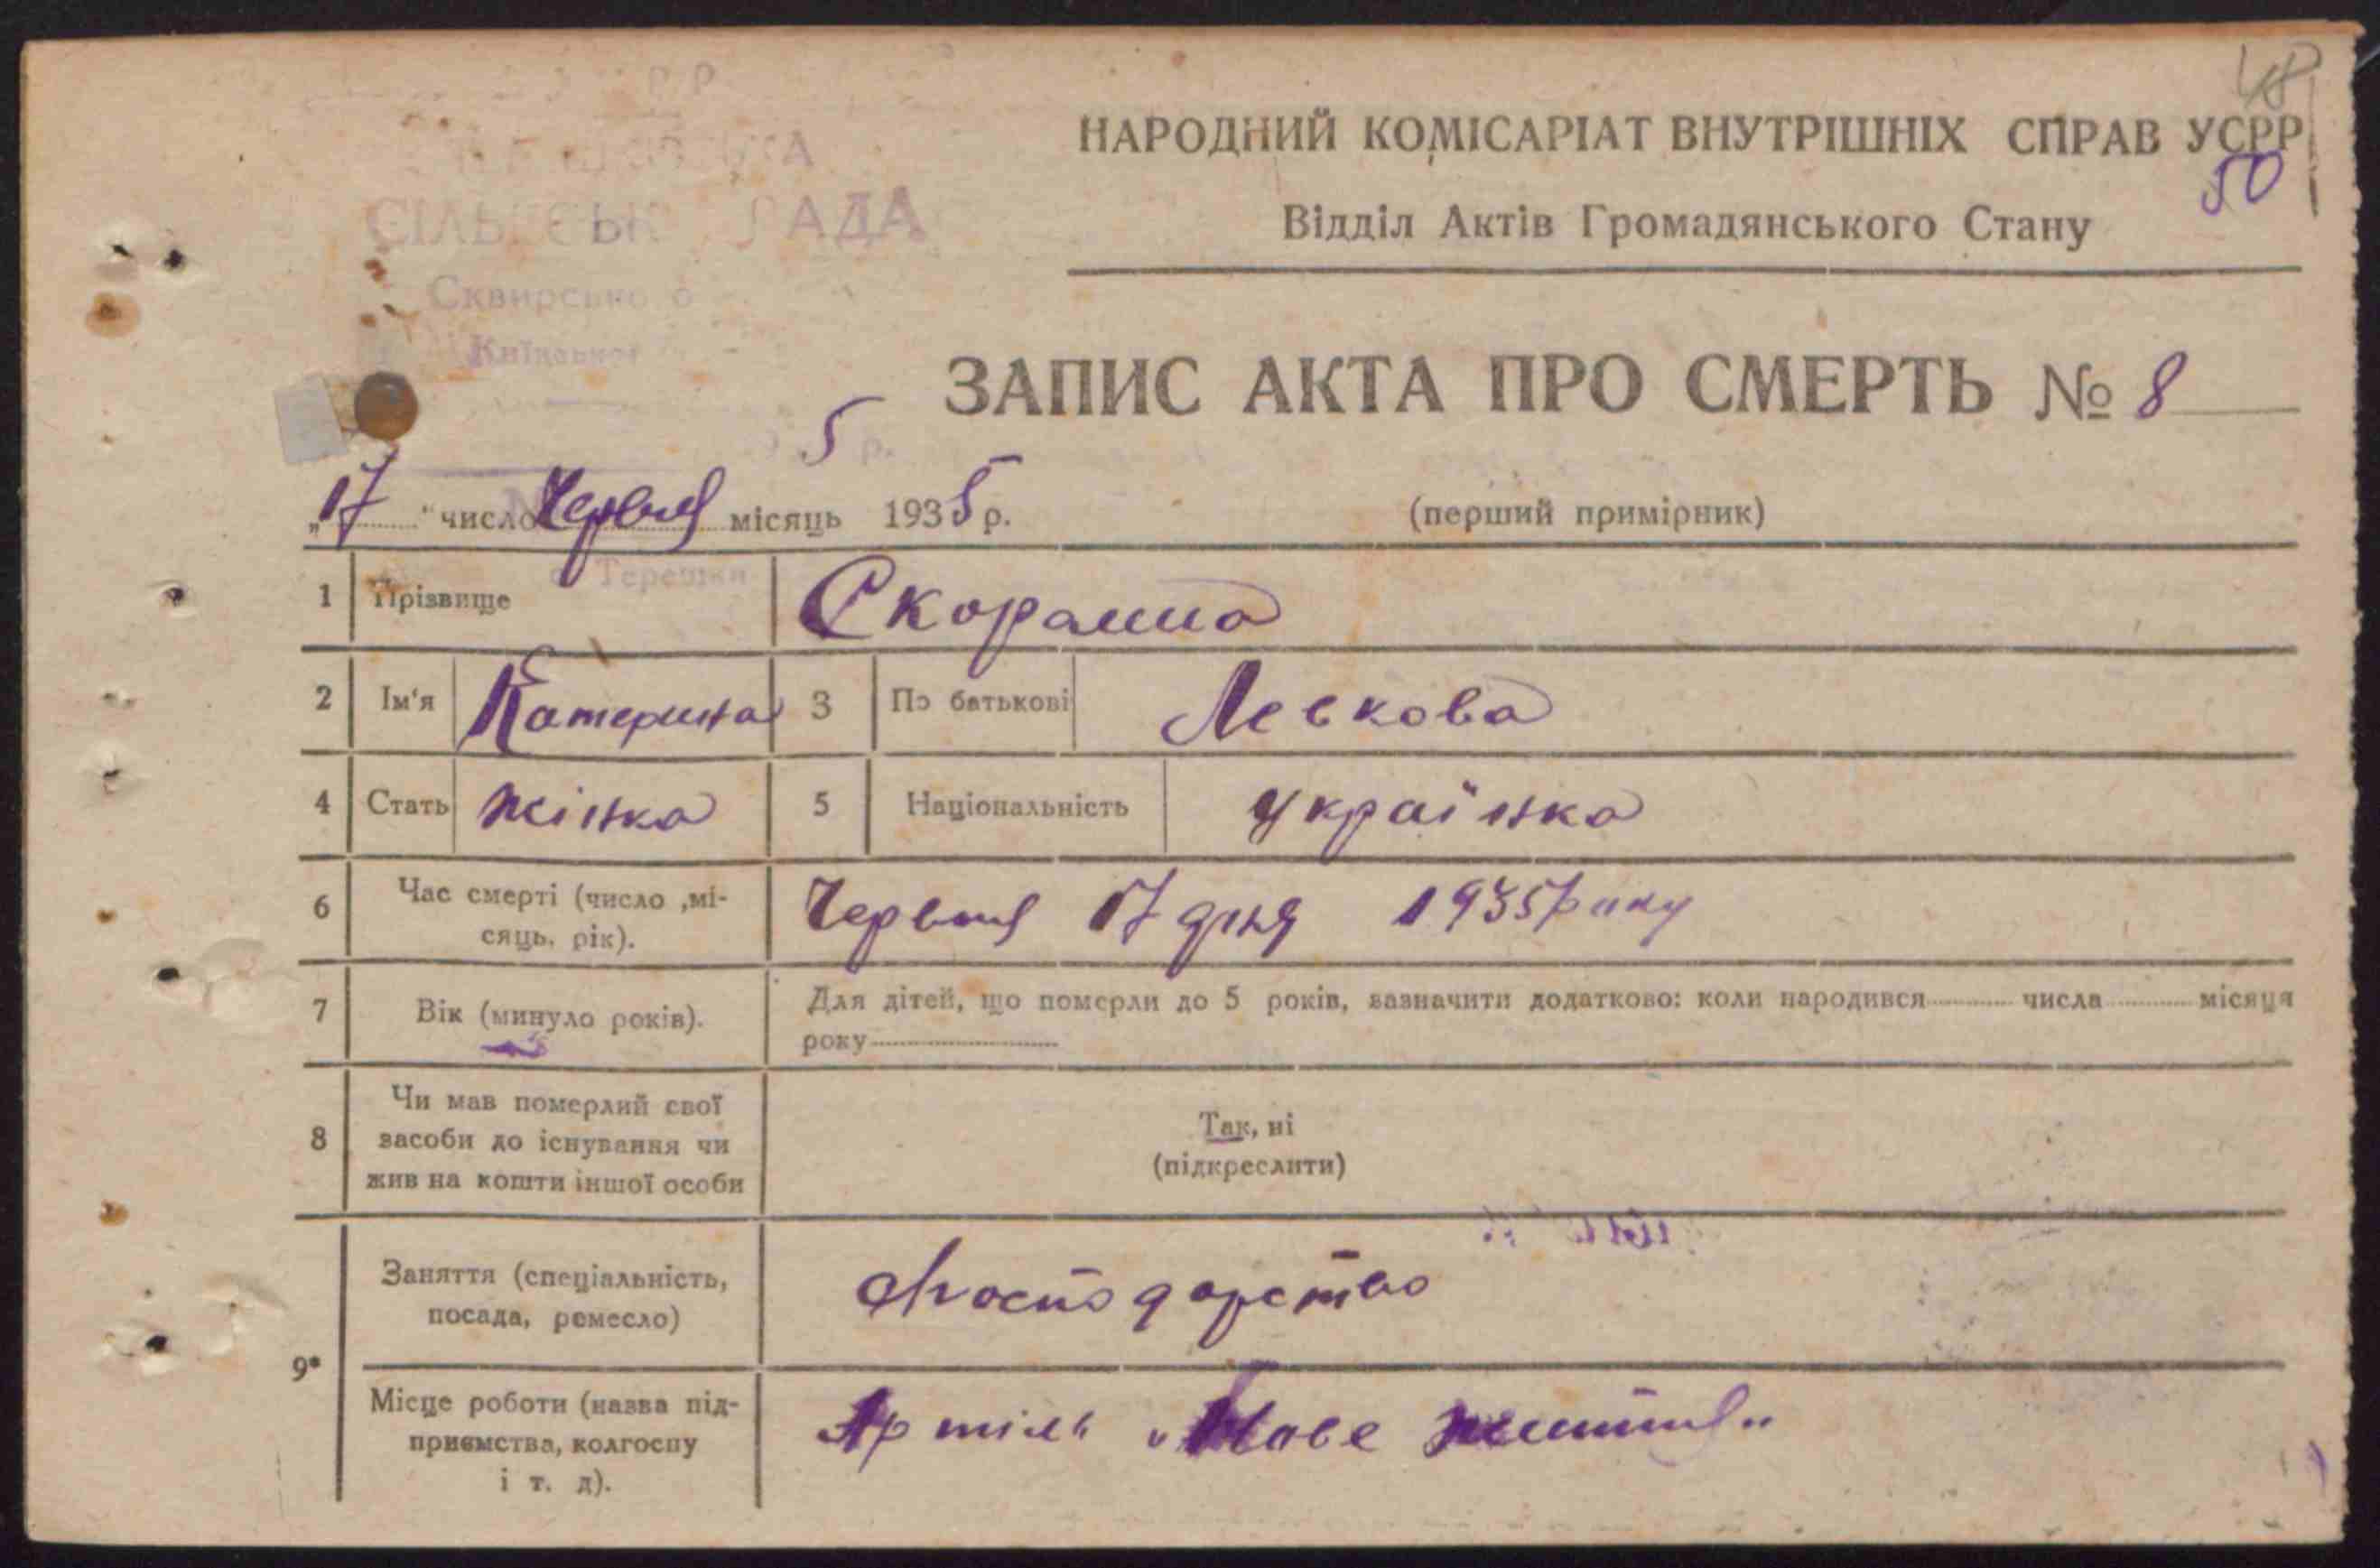 48
НАРОДНИЙ КОМІСАРІАТ ВНУТРІШНІХ СПРАВ УСРР
50
Відділ Актів Громадянського Стану
СІЛЬСЬК РАДА
Сквирського
Київської
5 р.
ЗАПИС АКТА ПРО СМЕРТЬ № 8
„17“ число Червня місяць 1935 р.
(перший примірник)
с. Терешки
1 Прізвище
2 Ім'я Катерина 3 По батькові Левкова
4 Стать жінка 5 Національність українка
6 Час смерті (число ,мі-
сяць, рік).
Червня 17 дня 1935 року
7 Вік (минуло років).
Для дітей, що померли до 5 років, зазначити додатково: коли народився числа місяця
року
8 Чи мав померлий свої
засоби до існування чи
жив на кошти іншої особи
Так, ні
(підкреслити)
9*
Заняття (спеціальність,
посада, ремесло)
господарство
Місце роботи (назва під-
приємства, колгоспу
і т. д).
Артіль „Нове життя"